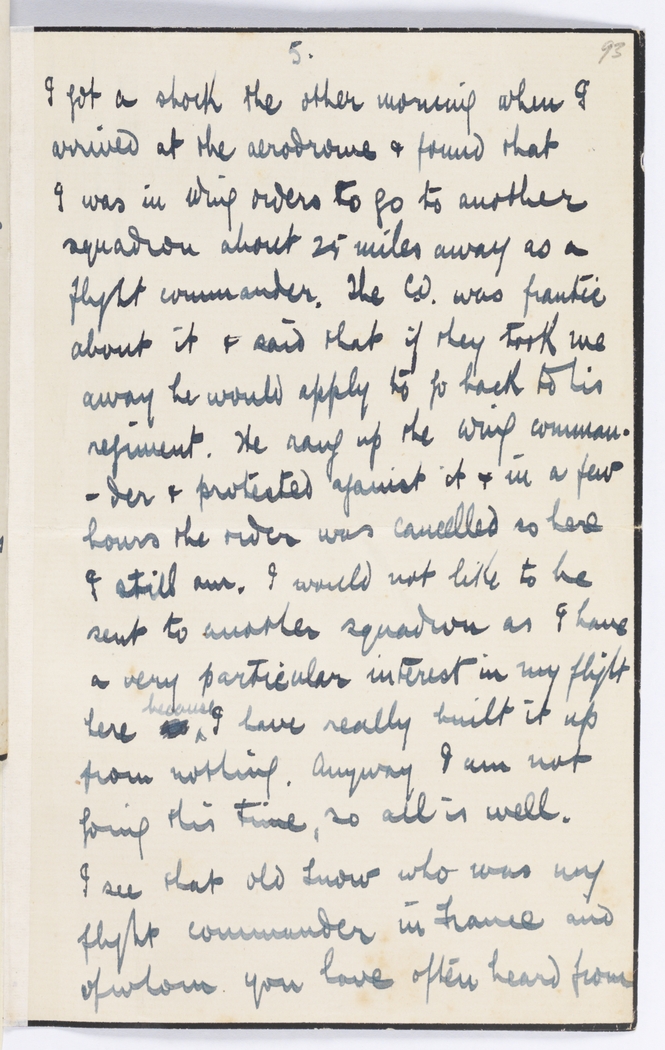 5.
93
I got a shock the other morning when I
arrived at the aerodrome & found that
I was in wing orders to go to another
squadron about 25 miles away as a
flight commander. The CO. was frantic
about it & said that if they took me
away he would apply to go back to his
regiment. He rang up the wing comman-
-der & protested against it & in a few
hours the order was cancelled so here
I still am. I would not like to be
sent to another squadron as I have
a very particular interest in my flight
here because I have really built it up
from nothing. Anyway I am not
going this time, so all is well.
I see that old Snow who was my
flight commander in France and
of whom you have often heard from